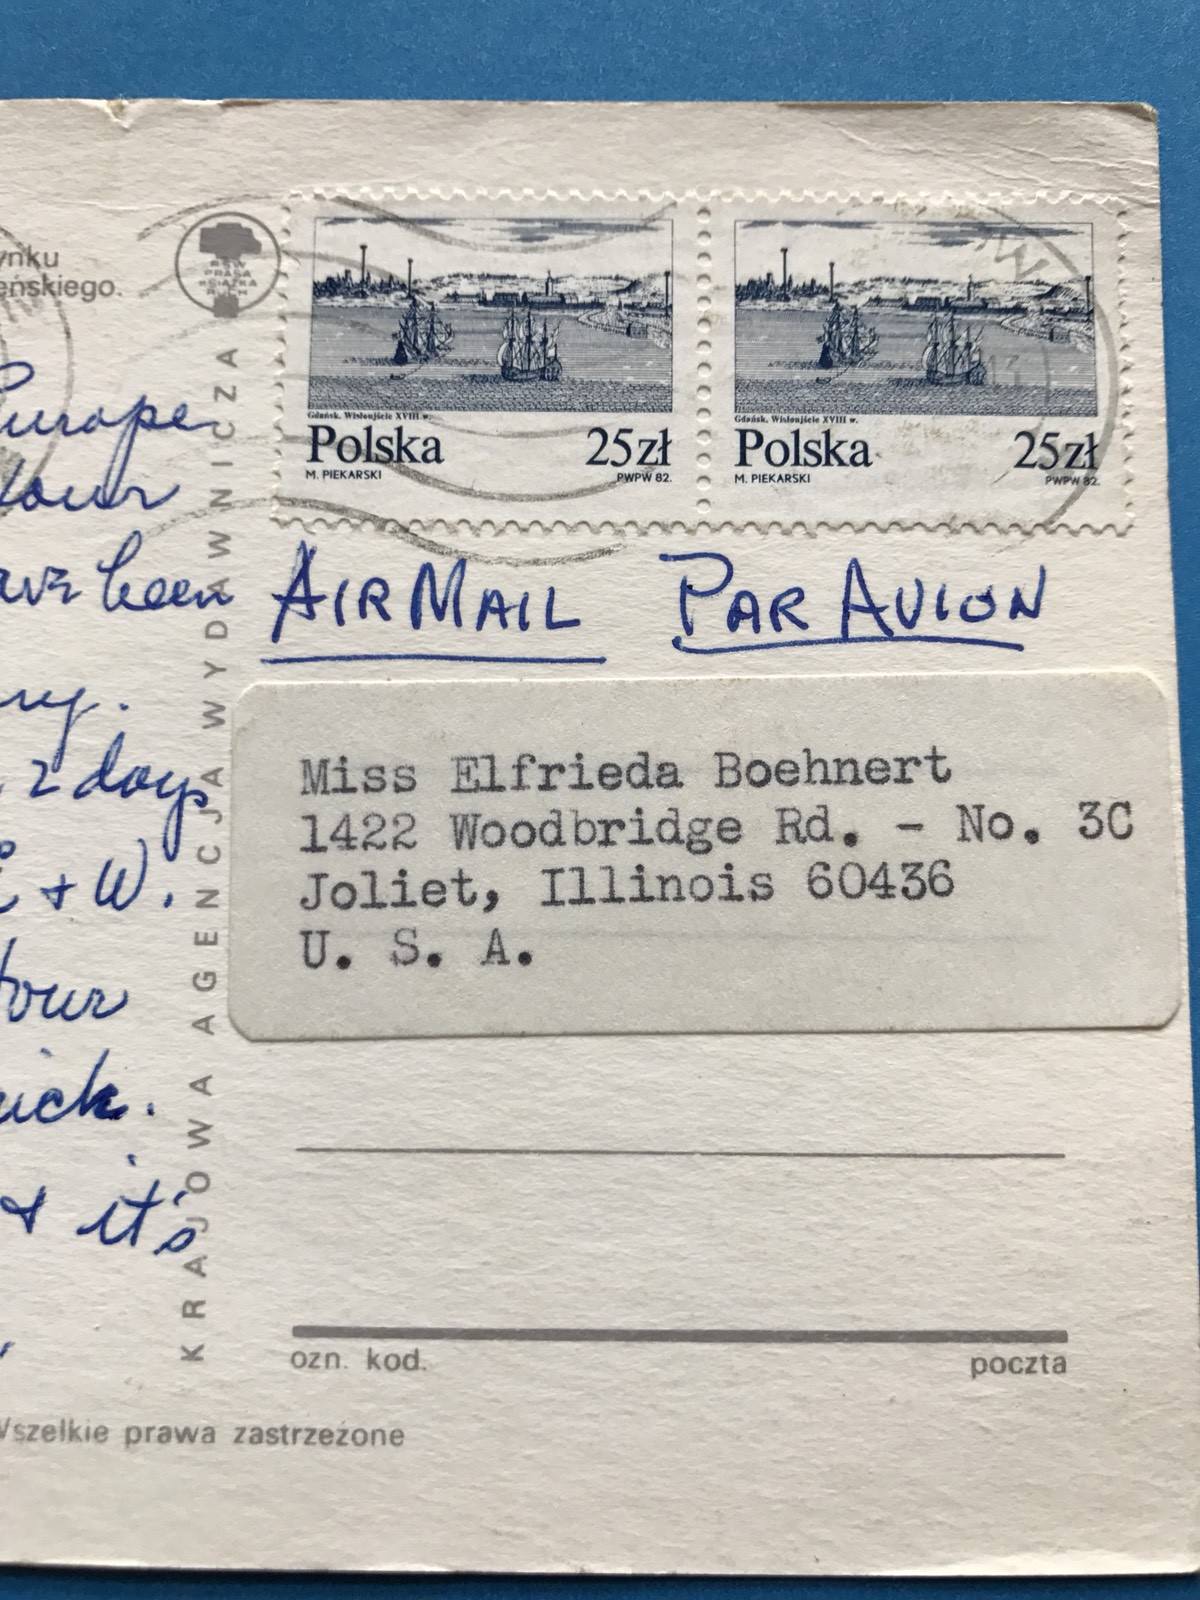 ynku
eńskiego.
RSW
PRASA
KSIĄŻKA
RUCH
Gdańsk. Wisłoujście XVIII w.
Polska 25zł
M. PIEKARSKI PWPW 82.
Gdańsk. Wisłoujście XVIII w.
Polska 25zł
M. PIEKARSKI PWPW 82.
Europe
tour
been
AIR MAIL PAR AVION
2 days
E & W.
tour
& it's
KRAJOWA AGENCJA WYDAWNICZA
Miss Elfrieda Boehnert
1422 Woodbridge Rd. - No. 3C
Joliet, Illinois 60436
U. S. A.
ozn. kod. poczta
Wszelkie prawa zastrzeżone